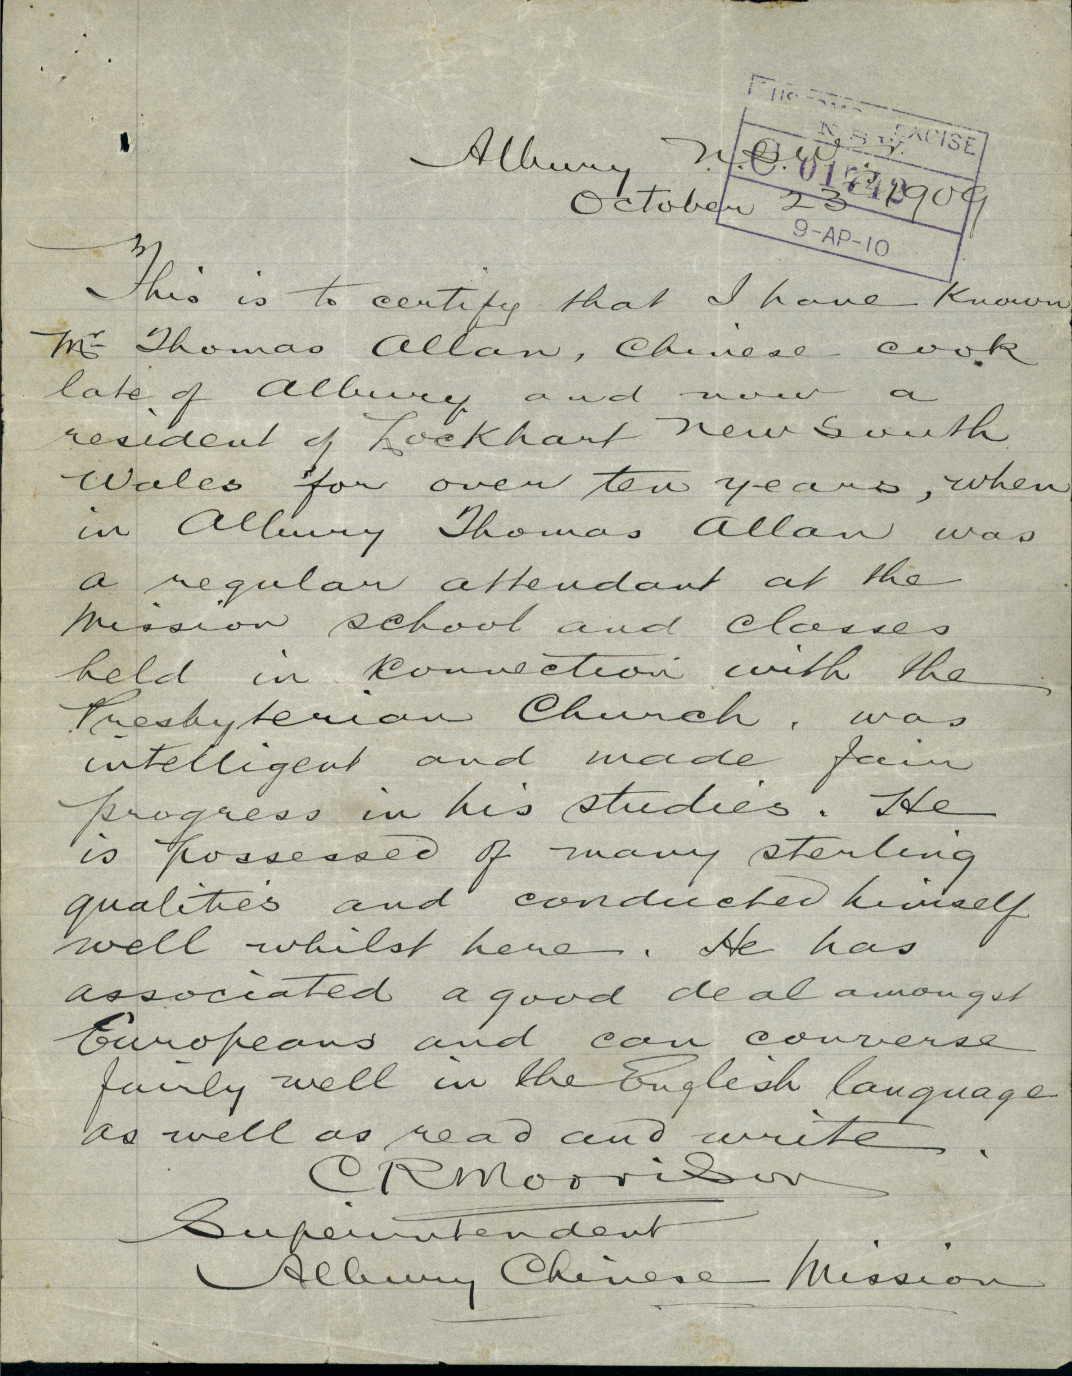 Albury N.S.W.
October 23 1909
EXCISE
N.S.W.
9-AP-10
This is to certify that I have known
Mr Thomas Allan, Chinese cook
late of Albury and now a
resident of Lockhart New South
Wales for over ten years, when
in Albury Thomas Allan was
a regular attendant at the
Mission school and classes
held in connection with the
Presbyterian Church, was
intelligent and made fair
progress in his studies. He
is possessed of many sterling
qualities and conducted himself
well whilst here. He has
associated a good deal amongst
Europeans and can converse
fairly well in the English language
as well as read and write.
C R Morrison
Superintendent
Albury Chinese Mission